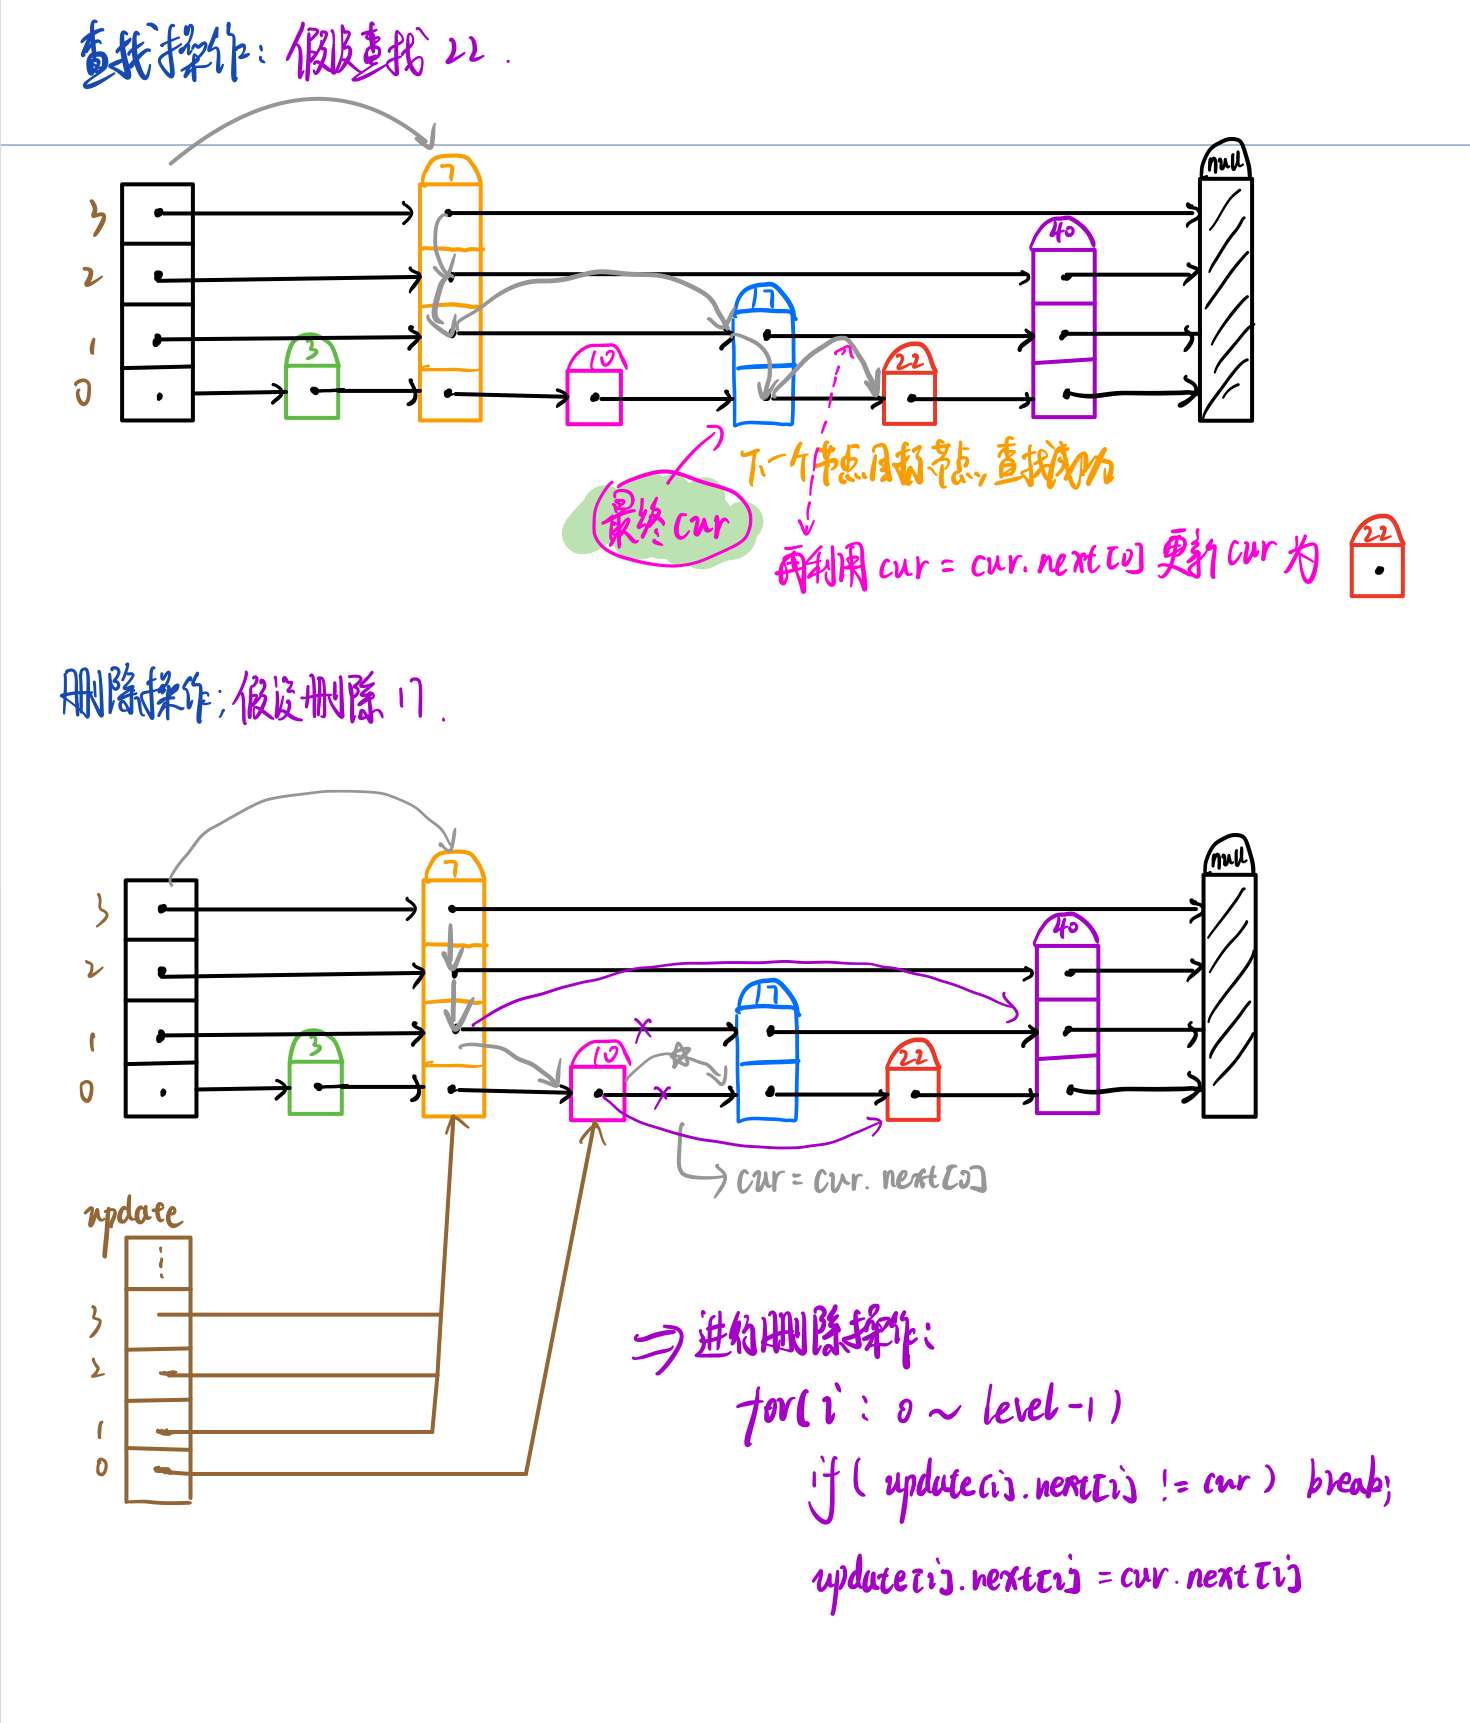 查找操作: 假设查找 22.
7
null
3
40
2
17
1
3
10
22
0
下一个节点目标节点, 查找成功
最终 cur
再利用 cur = cur.next[0] 更新 cur 为
22
删除操作: 假设删除 17.
7
null
3
40
2
17
1
3
10
22
0
cur = cur.next[0]
update
3
2
1
0
⇒ 进行删除操作:
for(i: 0 ~ level-1)
if( update[i].next[i] != cur ) break;
update[i].next[i] = cur.next[i]